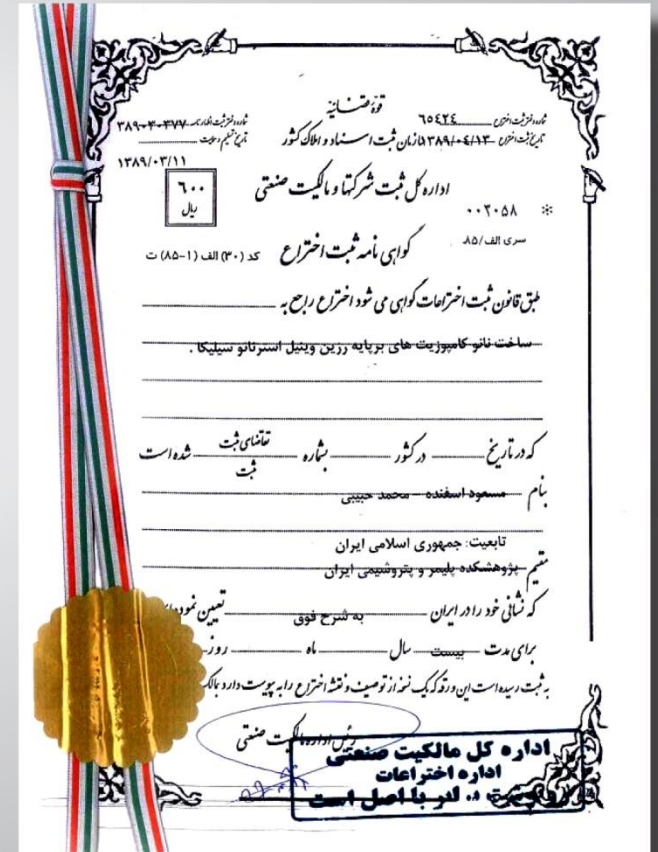 قوهٔ قضائیه
شماره دفتر ثبت اختراع ۶۵۴۲۴
شماره دفتر ثبت اظهارنامه ۳۸۹۰۳۰۳۷۷
تاریخ ثبت اختراع ۱۳۸۹/۰۴/۱۳
سازمان ثبت اسناد و املاک کشور
تاریخ تسلیم روایت
۱۳۸۹/۰۳/۱۱
اداره کل ثبت شرکتها و مالکیت صنعتی
۶۰۰
ریال
۰۰۲۰۵۸ *
سری الف/۸۵
گواهی نامه ثبت اختراع
کد (۳۰) الف (۱-۸۵) ت
طبق قانون ثبت اختراعات گواهی می شود اختراع راجع به
ساخت نانو کامپوزیت های برپایه رزین وینیل استرنانو سیلیکا .
که در تاریخ در کشور بشماره تقاضای ثبت شده است
ثبت
بنام مسعود اسفنده - محمد حبیبی
تابعیت: جمهوری اسلامی ایران
مقیم پژوهشکده پلیمر و پتروشیمی ایران
که نشانی خود را در ایران به شرح فوق تعیین نموده
برای مدت بیست سال ماه روز
به ثبت رسیده است این ورقه که یک نسخه از توصیف و نقشه اختراع را به پیوست دارد
رئیس اداره مالکیت صنعتی
اداره کل مالکیت صنعتی
اداره اختراعات
برابر با اصل است